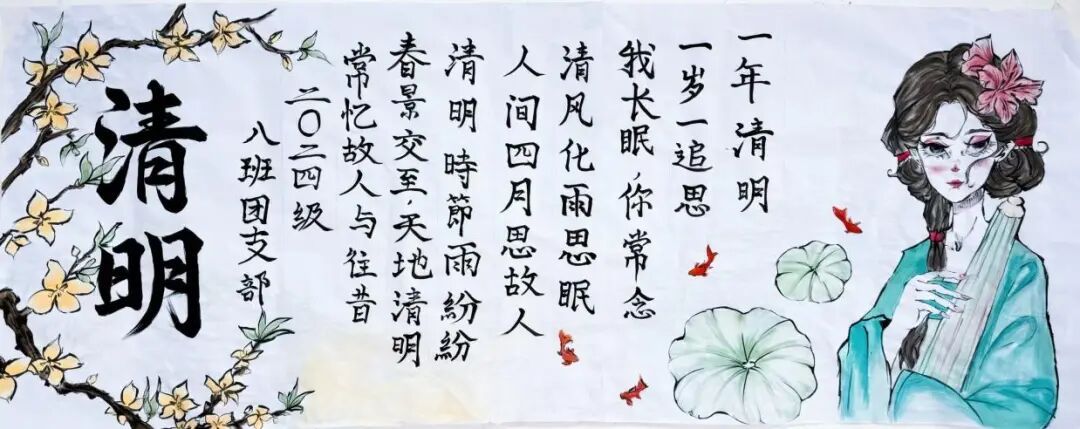 一年清明
一岁一追思
我长眠,你常念
清风化雨思眠
人间四月思故人
清明時節雨紛紛
春景交至,天地清明
常忆故人与往昔
二〇二四级
八班团支部
清明